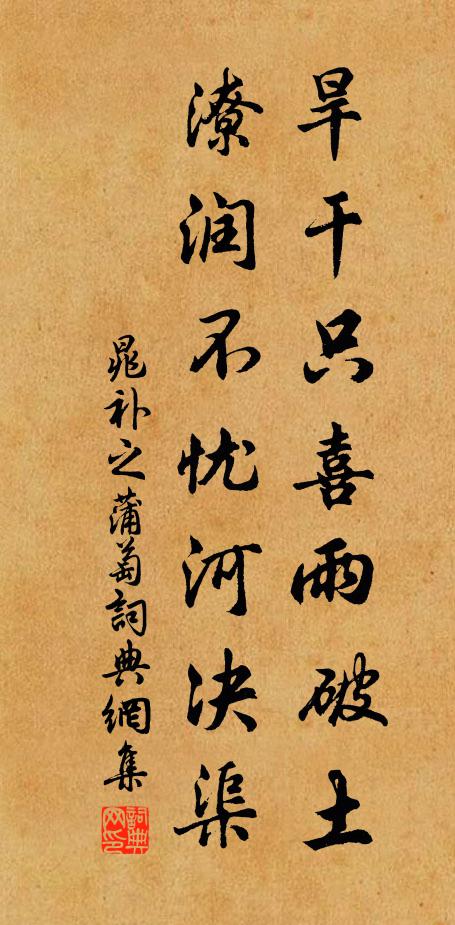 旱干只喜雨破土
潦润不忧河决渠
晁补之蒲萄詞典網集
詞典
网印